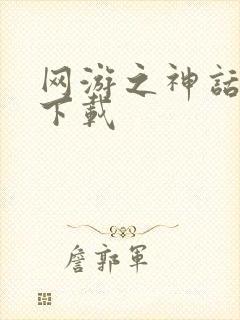 网游之神話
下載
詹郭軍